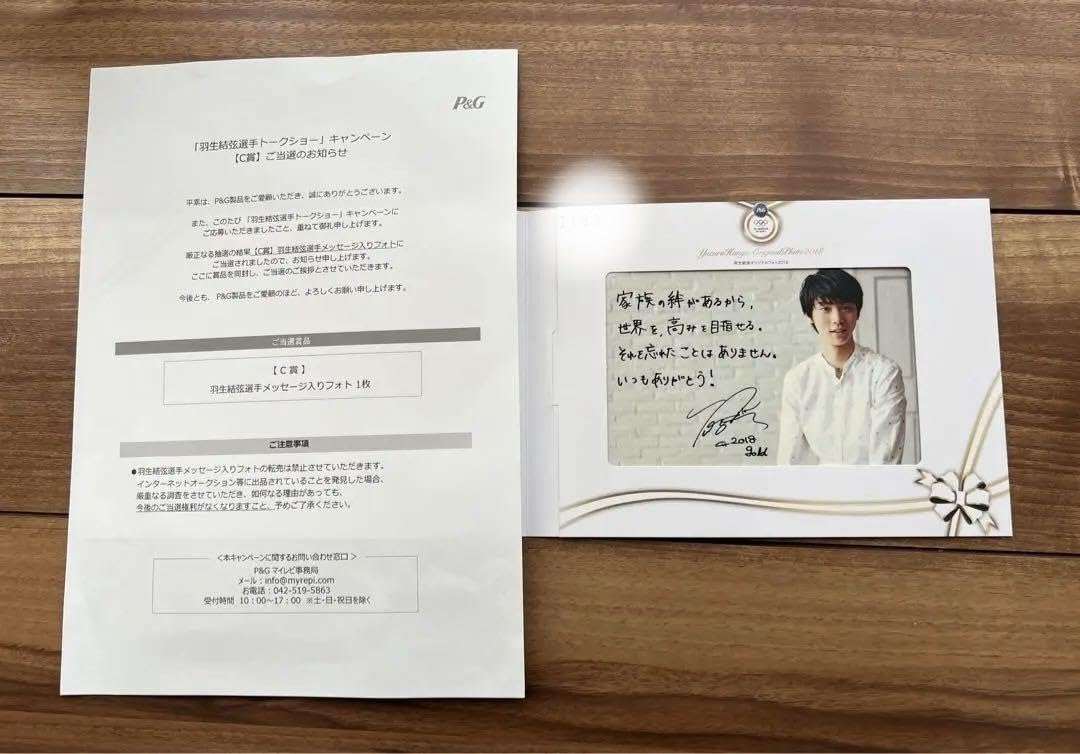 P&G
「羽生結弦選手トークショー」キャンペーン
【C賞】ご当選のお知らせ
平素は、P&G製品をご愛顧いただき、誠にありがとうございます。
また、このたび「羽生結弦選手トークショー」キャンペーンに
ご応募いただきましたこと、重ねて御礼申し上げます。
厳正なる抽選の結果【C賞】羽生結弦選手メッセージ入りフォトに
ご当選されましたので、お知らせ申し上げます。
ここに賞品を同封し、ご当選のご挨拶とさせていただきます。
今後とも、P&G製品をご愛顧のほど、よろしくお願い申し上げます。
ご当選賞品
【C賞】
羽生結弦選手メッセージ入りフォト 1枚
ご注意事項
●羽生結弦選手メッセージ入りフォトの転売は禁止させていただきます。
インターネットオークション等に出品されていることを発見した場合、
厳重なる調査をさせていただき、如何なる理由があっても、
今後のご当選権利がなくなりますこと、予めご了承ください。
<本キャンペーンに関するお問い合わせ窓口>
P&G マイレピ事務局
メール：info@myrepi.com
お電話：042-519-5863
受付時間 10：00～17：00 ※土・日・祝日を除く
P&G
Yuzuru Hanyu Original Photo 2018
羽生結弦オリジナルフォト2018
家族の絆があるから、
世界を、高みを目指せる。
それを忘れたことはありません。
いつもありがとう！
2018
gold